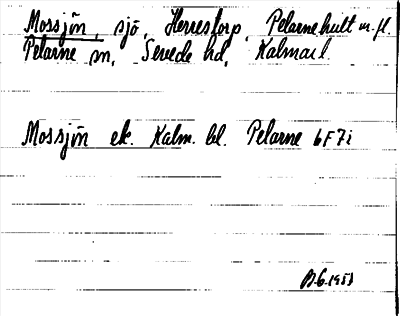 Mossjön, sjö, Herrestorp, Pelarnehult m.fl.
Pelarne sn, Sevede hd, Kalmar l.
Mossjön ek. Kalm. bl. Pelarne 6F7i
B.G. 1951